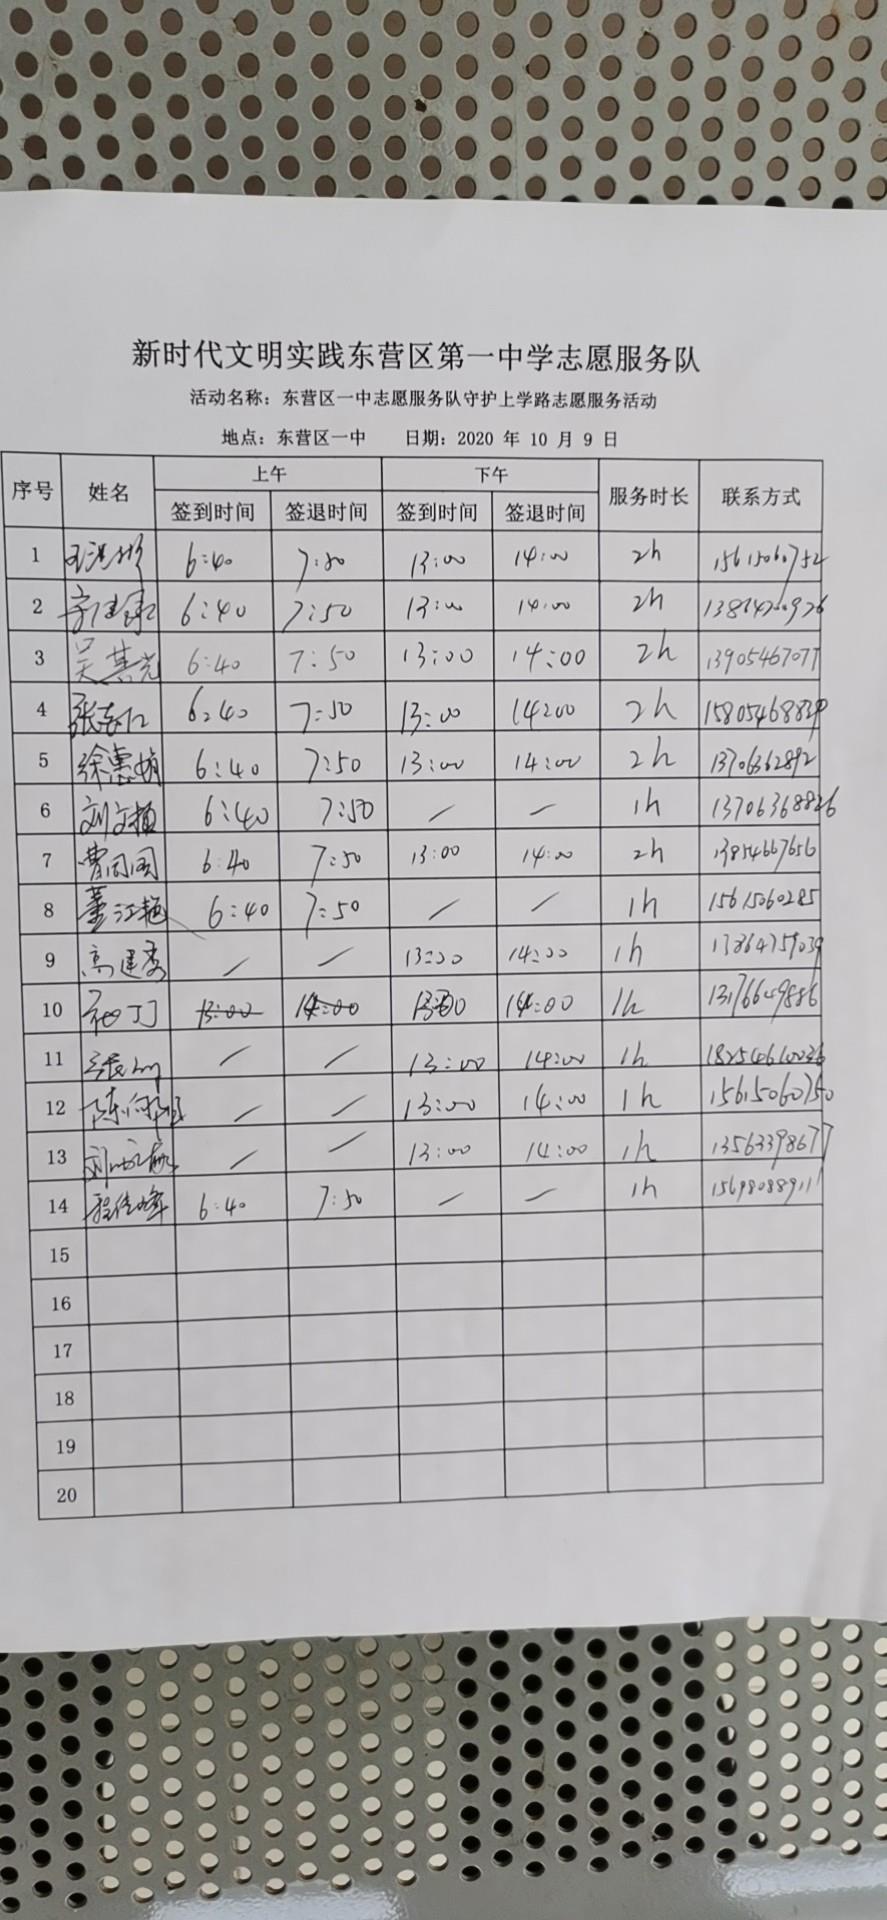 新时代文明实践东营区第一中学志愿服务队
活动名称：东营区一中志愿服务队守护上学路志愿服务活动
地点：东营区一中 日期：2020 年 10 月 9 日
序号 姓名 上午 下午 服务时长 联系方式
签到时间 签退时间 签到时间 签退时间
1 6:40 7:50 13:00 14:00 2h 15615060752
2 6:40 7:50 13:00 14:00 2h
3 吴其光 6:40 7:50 13:00 14:00 2h 13905467077
4 6:40 7:50 13:00 14:00 2h
5 徐惠娟 6:40 7:50 13:00 14:00 2h 13706362892
6 6:40 7:50 / — 1h 13706368826
7 曹同同 6:40 7:50 13:00 14:00 2h 13854667656
8 董江艳 6:40 7:50 / / 1h 15615060285
9 高建秀 / / 13:00 14:00 1h 13864759039
10 13:00 14:00 13:00 14:00 1h 13176649886
11 / / 13:00 14:00 1h
12 / / 13:00 14:00 1h 15615060750
13 / / 13:00 14:00 1h 13563398677
14 6:40 7:50 — — 1h 15698088911
15
16
17
18
19
20